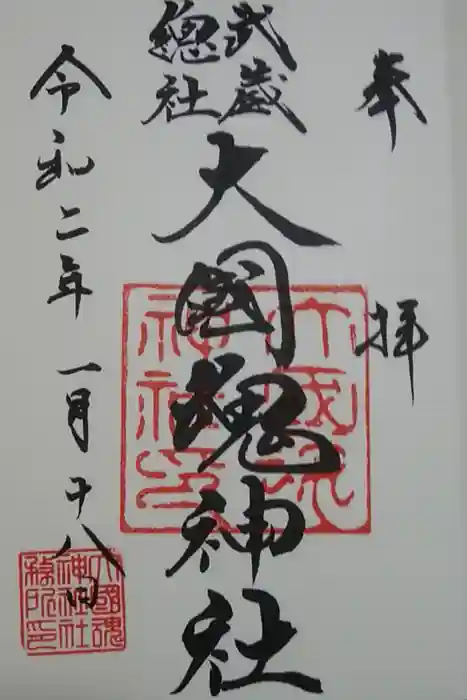 奉拝
武蔵
總社
大國魂神社
令和二年一月十八日
大國魂
神社印
大國魂
神社社
務所印